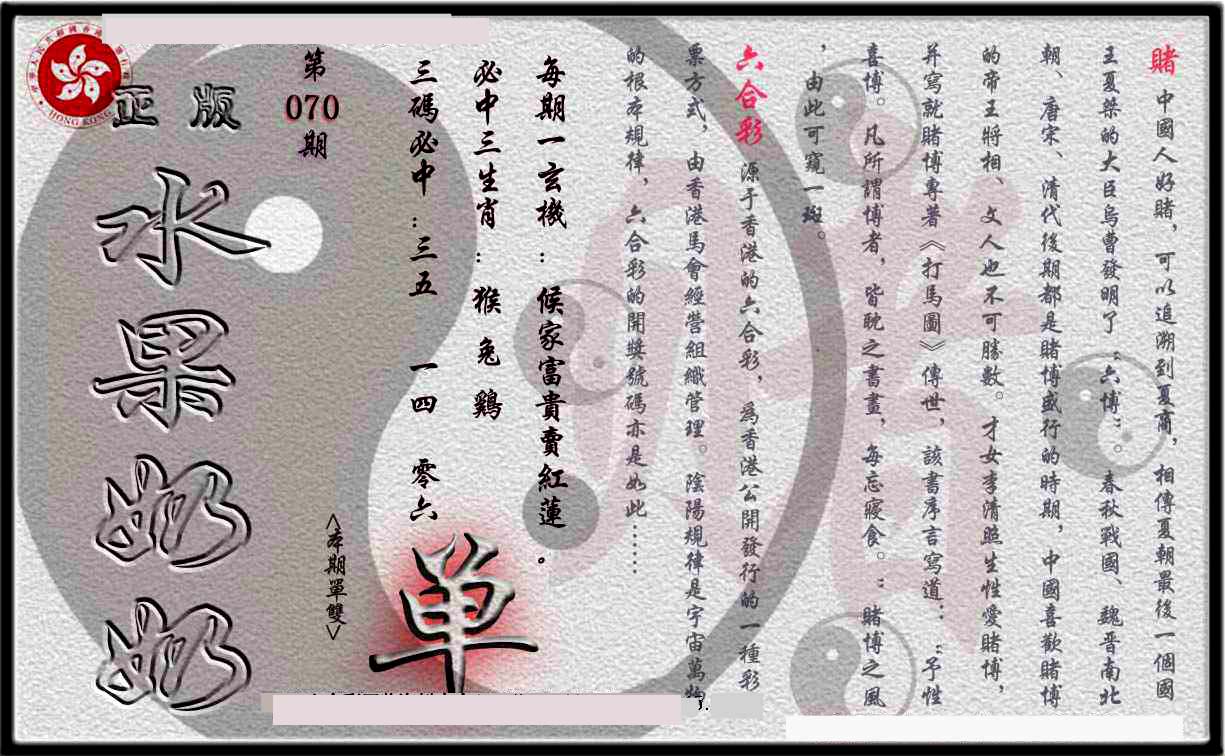 賭 中國人好賭，可以追溯到夏商，相傳夏朝最後一個國
王夏桀的大臣烏曹發明了“六博”。春秋戰國、魏晋南北
朝、唐宋、清代後期都是賭博盛行的時期，中國喜歡賭博
的帝王將相、文人也不可勝數。才女李清照生性愛賭博，
并寫就賭博專著《打馬圖》傳世，該書序言寫道：“予性
喜博。凡所謂博者，皆耽之書畫，每忘寢食。”賭博之風
，由此可窺一斑。
六合彩 源于香港的六合彩，爲香港公開發行的一種彩
票方式，由香港馬會經營組織管理。陰陽規律是宇宙萬物
的根本規律，六合彩的開獎號碼亦是如此……
每期一玄機：候家富貴賣紅蓮。
必中三生肖：猴兔鷄
三碼必中：三五 一四 零六
單
<本期單雙>
第
070
期
正版
水果奶奶
HONG KONG